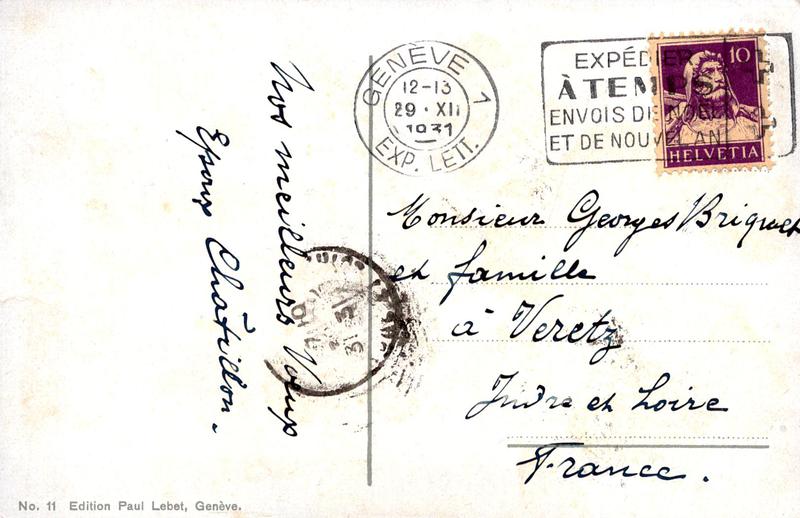 Nos meilleurs Voeux
Epoux Châtillon.
GENÈVE 1
12-13
29 · XII
1931
EXP. LETT.
EXPÉDIER
À TEMPS
ENVOIS DE NOËL
ET DE NOUVEL AN
10
HELVETIA
Monsieur Georges Briquet
et famille
à Veretz
Indre et Loire
France.
No. 11 Edition Paul Lebet, Genève.